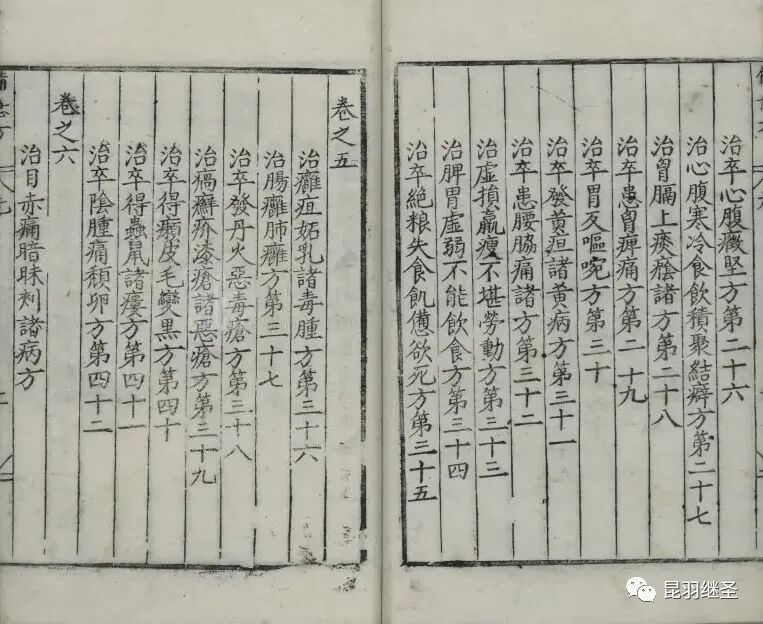 治卒心腹癥堅方第二十六
治心腹寒冷食飲積聚結癖方第二十七
治胷膈上痰癊諸方第二十八
治卒患胷痺痛方第二十九
治卒胃反嘔啘方第三十
治卒發黃疸諸黃病方第三十一
治卒患腰脇痛諸方第三十二
治虛損羸瘦不堪勞動方第三十三
治脾胃虛弱不能飲食方第三十四
治卒絶粮失食飢憊欲死方第三十五
卷之五
治癰疽妬乳諸毒腫方第三十六
治腸癰肺癰方第三十七
治卒發丹火惡毒瘡方第三十八
治瘑癬疥漆瘡諸惡瘡方第三十九
治卒得癩皮毛變黑方第四十
治卒得蟲鼠諸瘻方第四十一
治卒陰腫痛頹卵方第四十二
卷之六
治目赤痛暗昧刺諸病方
昆羽继圣